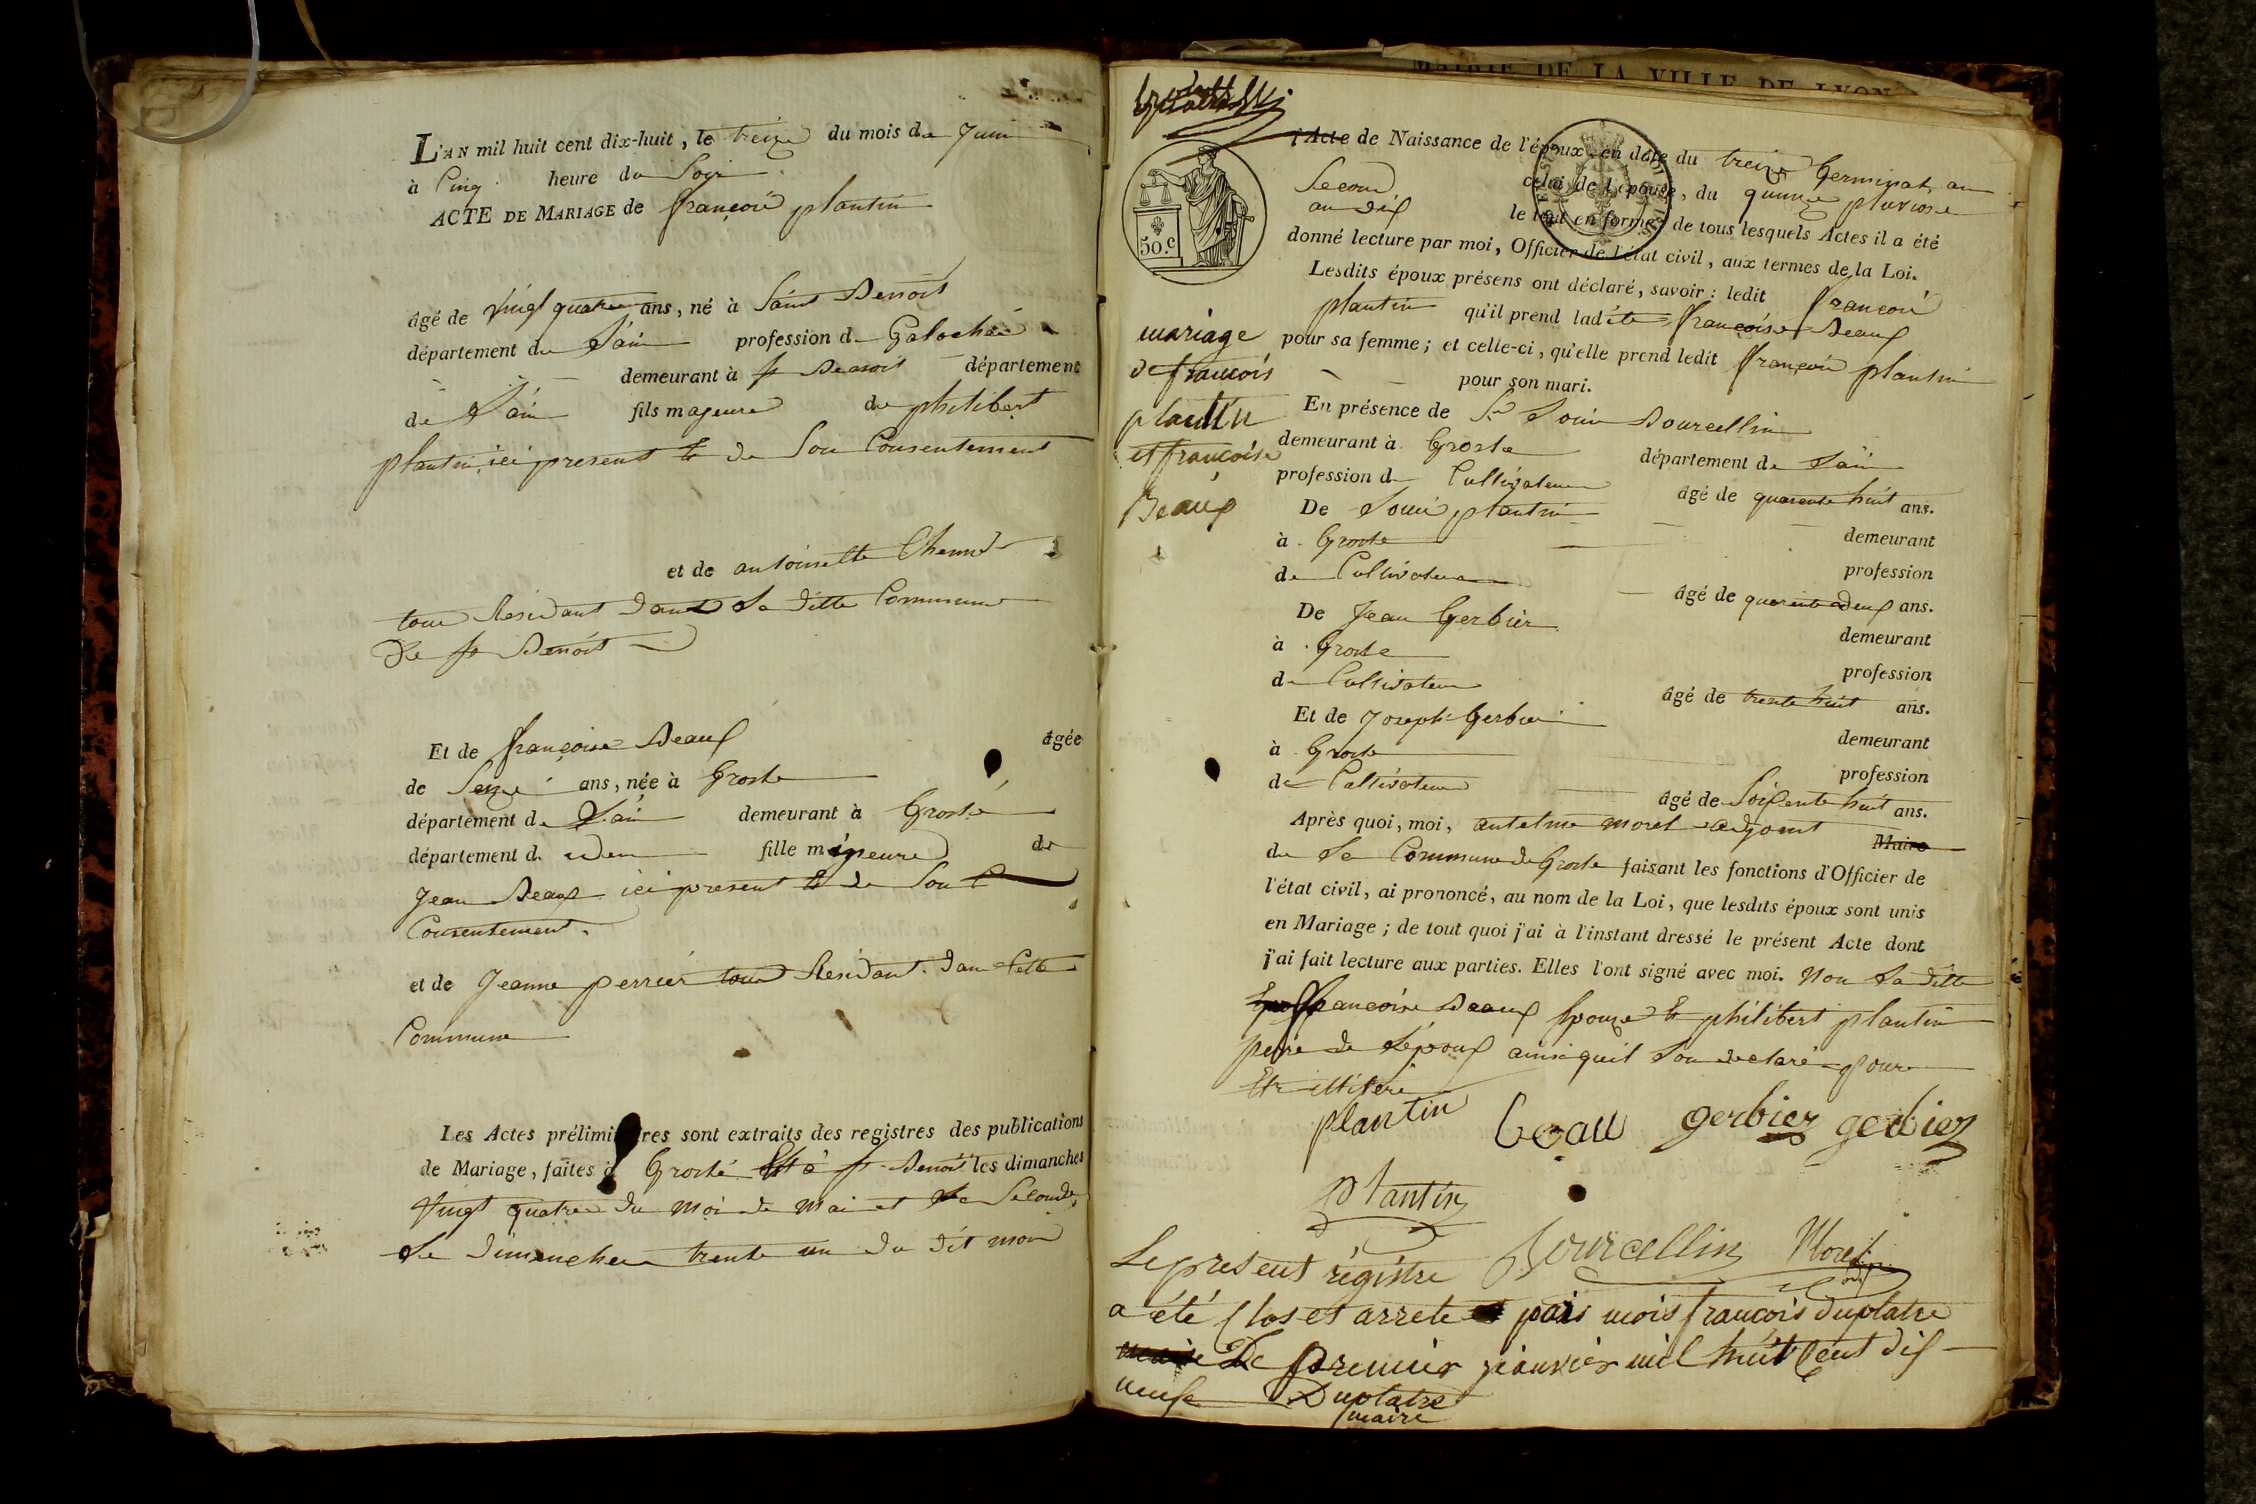 L'AN mil huit cent dix-huit, le treize du mois de Juin
à Cinq heure du Soir
ACTE DE MARIAGE de françois plantin
âgé de vingt quatre ans, né à Saint Benoit
département de L'ain profession de Galochée
demeurant à st Benoit département
de L'ain fils majeure de philibert
plantin ici present et de Son Consentement
et de antoinette
tous Residant dans La ditte Commune
De st Benoit
Et de françoise Beaux âgée
de Seize ans, née à Groslé
département de L'ain demeurant à Groslé
département d. idem fille mineure de
Jean Beaux ici present et de Son C
Consentement.
et de Jeanne perrier tous Residant dans Cette
Commune
Les Actes préliminaires sont extraits des registres des publications
de Mariage, faites à Groslé Et à st Benoit les dimanches
vingt quatre du moi de mai et Le Seconde
Le dimanche trente un du dit mois
MAIRIE DE LA VILLE DE LYON
l'Acte de Naissance de l'époux en date du treize Germinal an
Second celui de l'épouse, du quinze pluviose
an dix le tout en forme; de tous lesquels Actes il a été
donné lecture par moi, Officier de l'état civil, aux termes de la Loi.
50.c
Lesdits époux présens ont déclaré, savoir: ledit françois
plantin qu'il prend ladite françoise Beaux
pour sa femme; et celle-ci, qu'elle prend ledit françois plantin
pour son mari.
mariage
de francois
plantin
et françoise
Beaux
En présence de Sr Louis Bourcellin
demeurant à Groslé département de L'ain
profession de Cultivateur âgé de quarente huit ans.
De Louis plantin demeurant
à Groslé profession
de Cultivateur âgé de quarente deux ans.
De Jean Gerbier demeurant
à Groslé profession
de Cultivateur âgé de trente huit ans.
Et de Joseph Gerbier demeurant
à Groslé profession
de Cultivateur âgé de Soixente huit ans.
Après quoi, moi, antelme morel adjoint Maire
de La Commune de Groslé faisant les fonctions d'Officier de
l'état civil, ai prononcé, au nom de la Loi, que lesdits époux sont unis
en Mariage; de tout quoi j'ai à l'instant dressé le présent Acte dont
j'ai fait lecture aux parties. Elles l'ont signé avec moi. Non La ditte
françoise Beaux Epouze et philibert plantin
pere de L'époux ainsi quil Lon declaré pour
Etr illiteré
plantin beau gerbier gerbier
plantin
Bourcellin Morel
Le present régistre
a été Clos et arreté par mois françois duplatre
Le premier janvier mil huit Cent dix
neuf Duplatre
maire